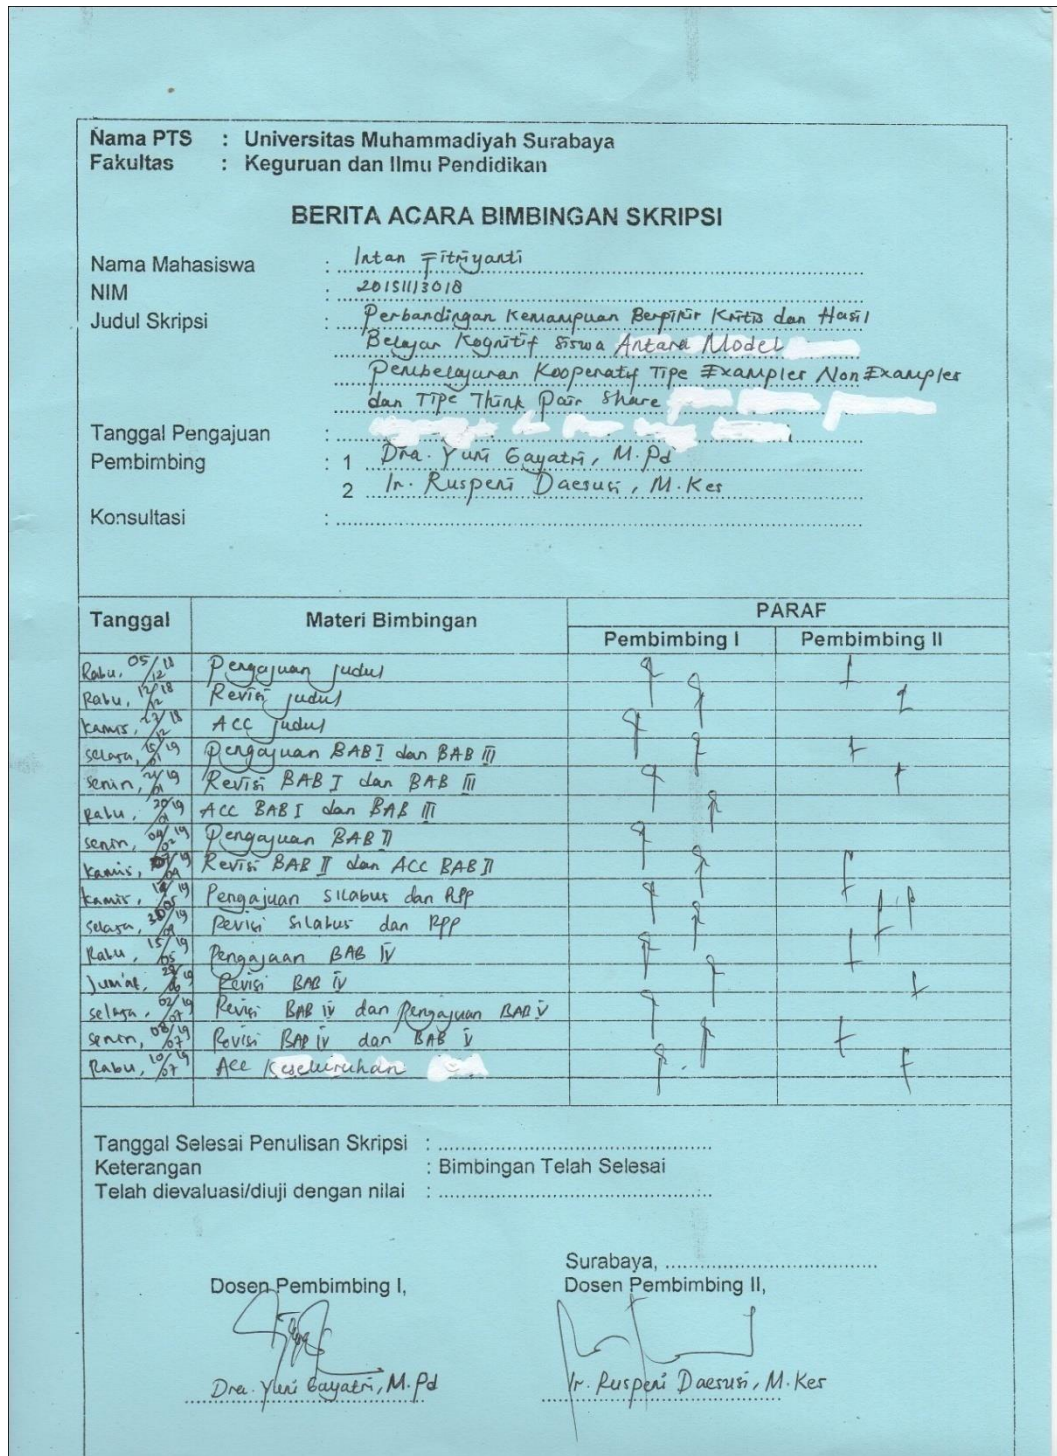 Nama PTS : Universitas Muhammadiyah Surabaya
Fakultas : Keguruan dan Ilmu Pendidikan
BERITA ACARA BIMBINGAN SKRIPSI
Nama Mahasiswa : Intan Fitriyanti
NIM : 20151113018
Judul Skripsi : Perbandingan Kemampuan Berpikir Kritis dan Hasil
Belajar Kognitif Siswa Antara Model
Pembelajaran Kooperatif Tipe Examples Non Examples
dan Tipe Think Pair Share
Tanggal Pengajuan :
Pembimbing : 1 Dra. Yuni Gayatri, M.Pd
2 Ir. Ruspeni Daesusi, M.Kes
Konsultasi :
Tanggal Materi Bimbingan PARAF
Pembimbing I Pembimbing II
Rabu, 05/12 18 Pengajuan judul
Rabu, 12/12 18 Revisi judul
Kamis, 27/12 18 ACC judul
Selasa, 15/01 19 Pengajuan BAB I dan BAB III
Senin, 21/01 19 Revisi BAB I dan BAB III
Rabu, 30/01 19 ACC BAB I dan BAB III
Senin, 04/02 19 Pengajuan BAB II
Kamis, Revisi BAB II dan ACC BAB II
Kamis, Pengajuan Silabus dan RPP
Selasa, Revisi Silabus dan RPP
Rabu, 15/05 19 Pengajaan BAB IV
Jum'at, Revisi BAB IV
Selasa, 02/07 19 Revisi BAB IV dan Pengajuan BAB V
Senin, 08/07 19 Revisi BAB IV dan BAB V
Rabu, 10/07 19 Acc Keseluruhan
Tanggal Selesai Penulisan Skripsi :
Keterangan : Bimbingan Telah Selesai
Telah dievaluasi/diuji dengan nilai :
Surabaya,
Dosen Pembimbing I, Dosen Pembimbing II,
Dra. Yuni Gayatri, M.Pd Ir. Ruspeni Daesusi, M.Kes